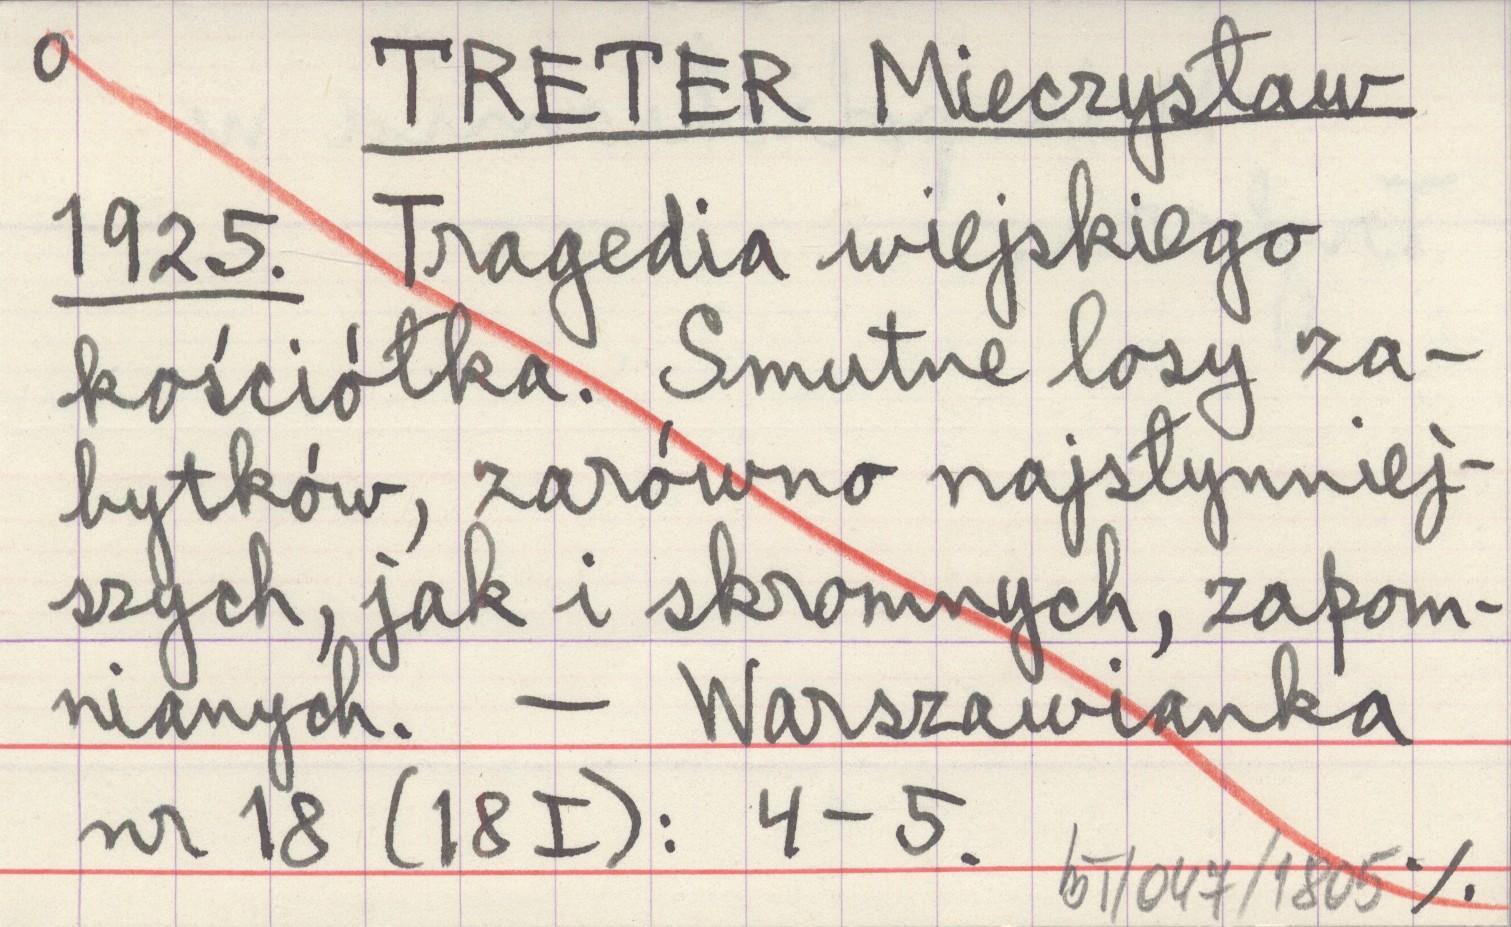 o TRETER Mieczysław
1925. Tragedia wiejskiego
kościółka. Smutne losy za-
bytków, zarówno najsłynniej-
szych, jak i skromnych, zapom-
nianych. — Warszawianka
nr 18 (18 I): 4-5.
/047/1805 ./.